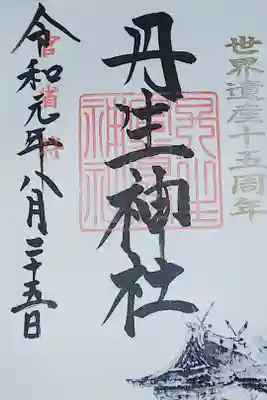 世界遺産十五周年
丹生神社
令和元年八月二十五日